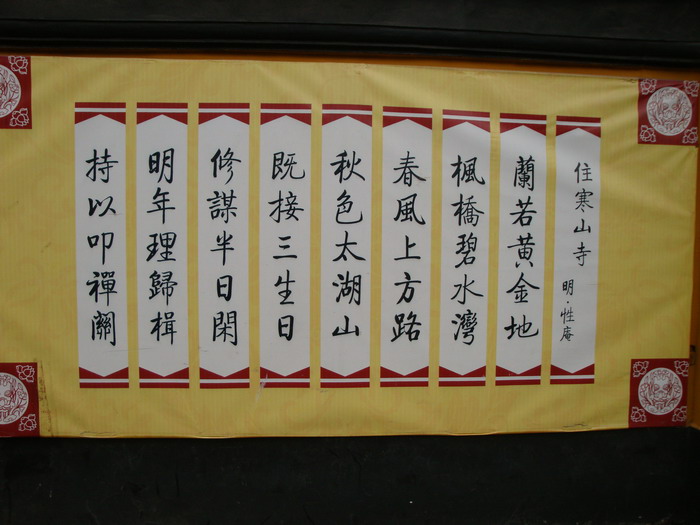 住寒山寺 明·性庵
蘭若黃金地
楓橋碧水灣
春風上方路
秋色太湖山
既接三生日
修謀半日閑
明年理歸楫
持以叩禪關